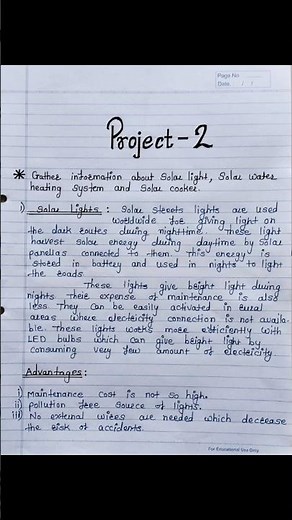 Page No.
Date / /
Project-2
* Gather information about Solar light, Solar water
heating System and Solar cooker.
i) Solar Lights : Solar Streets lights are used
worldwide for giving light on
the dark routes during nighttime. These light
harvest Solar energy during daytime by Solar
panells connected to them. This energy is
Stored in battery and used in nights to light
the roads.
These lights give bright light during
nights their expense of maintenance is also
less. They can be easily activated in rural
areas where electricity connection is not availa-
ble. These lights works more efficiently with
LED bulbs which can give bright light by
consuming very few amount of electricity.
Advantages :
i) Maintenance cost is not so high.
ii) Pollution free source of lights.
iii) No external wires are needed which decrease
the risk of accidents.
For Educational Use Only